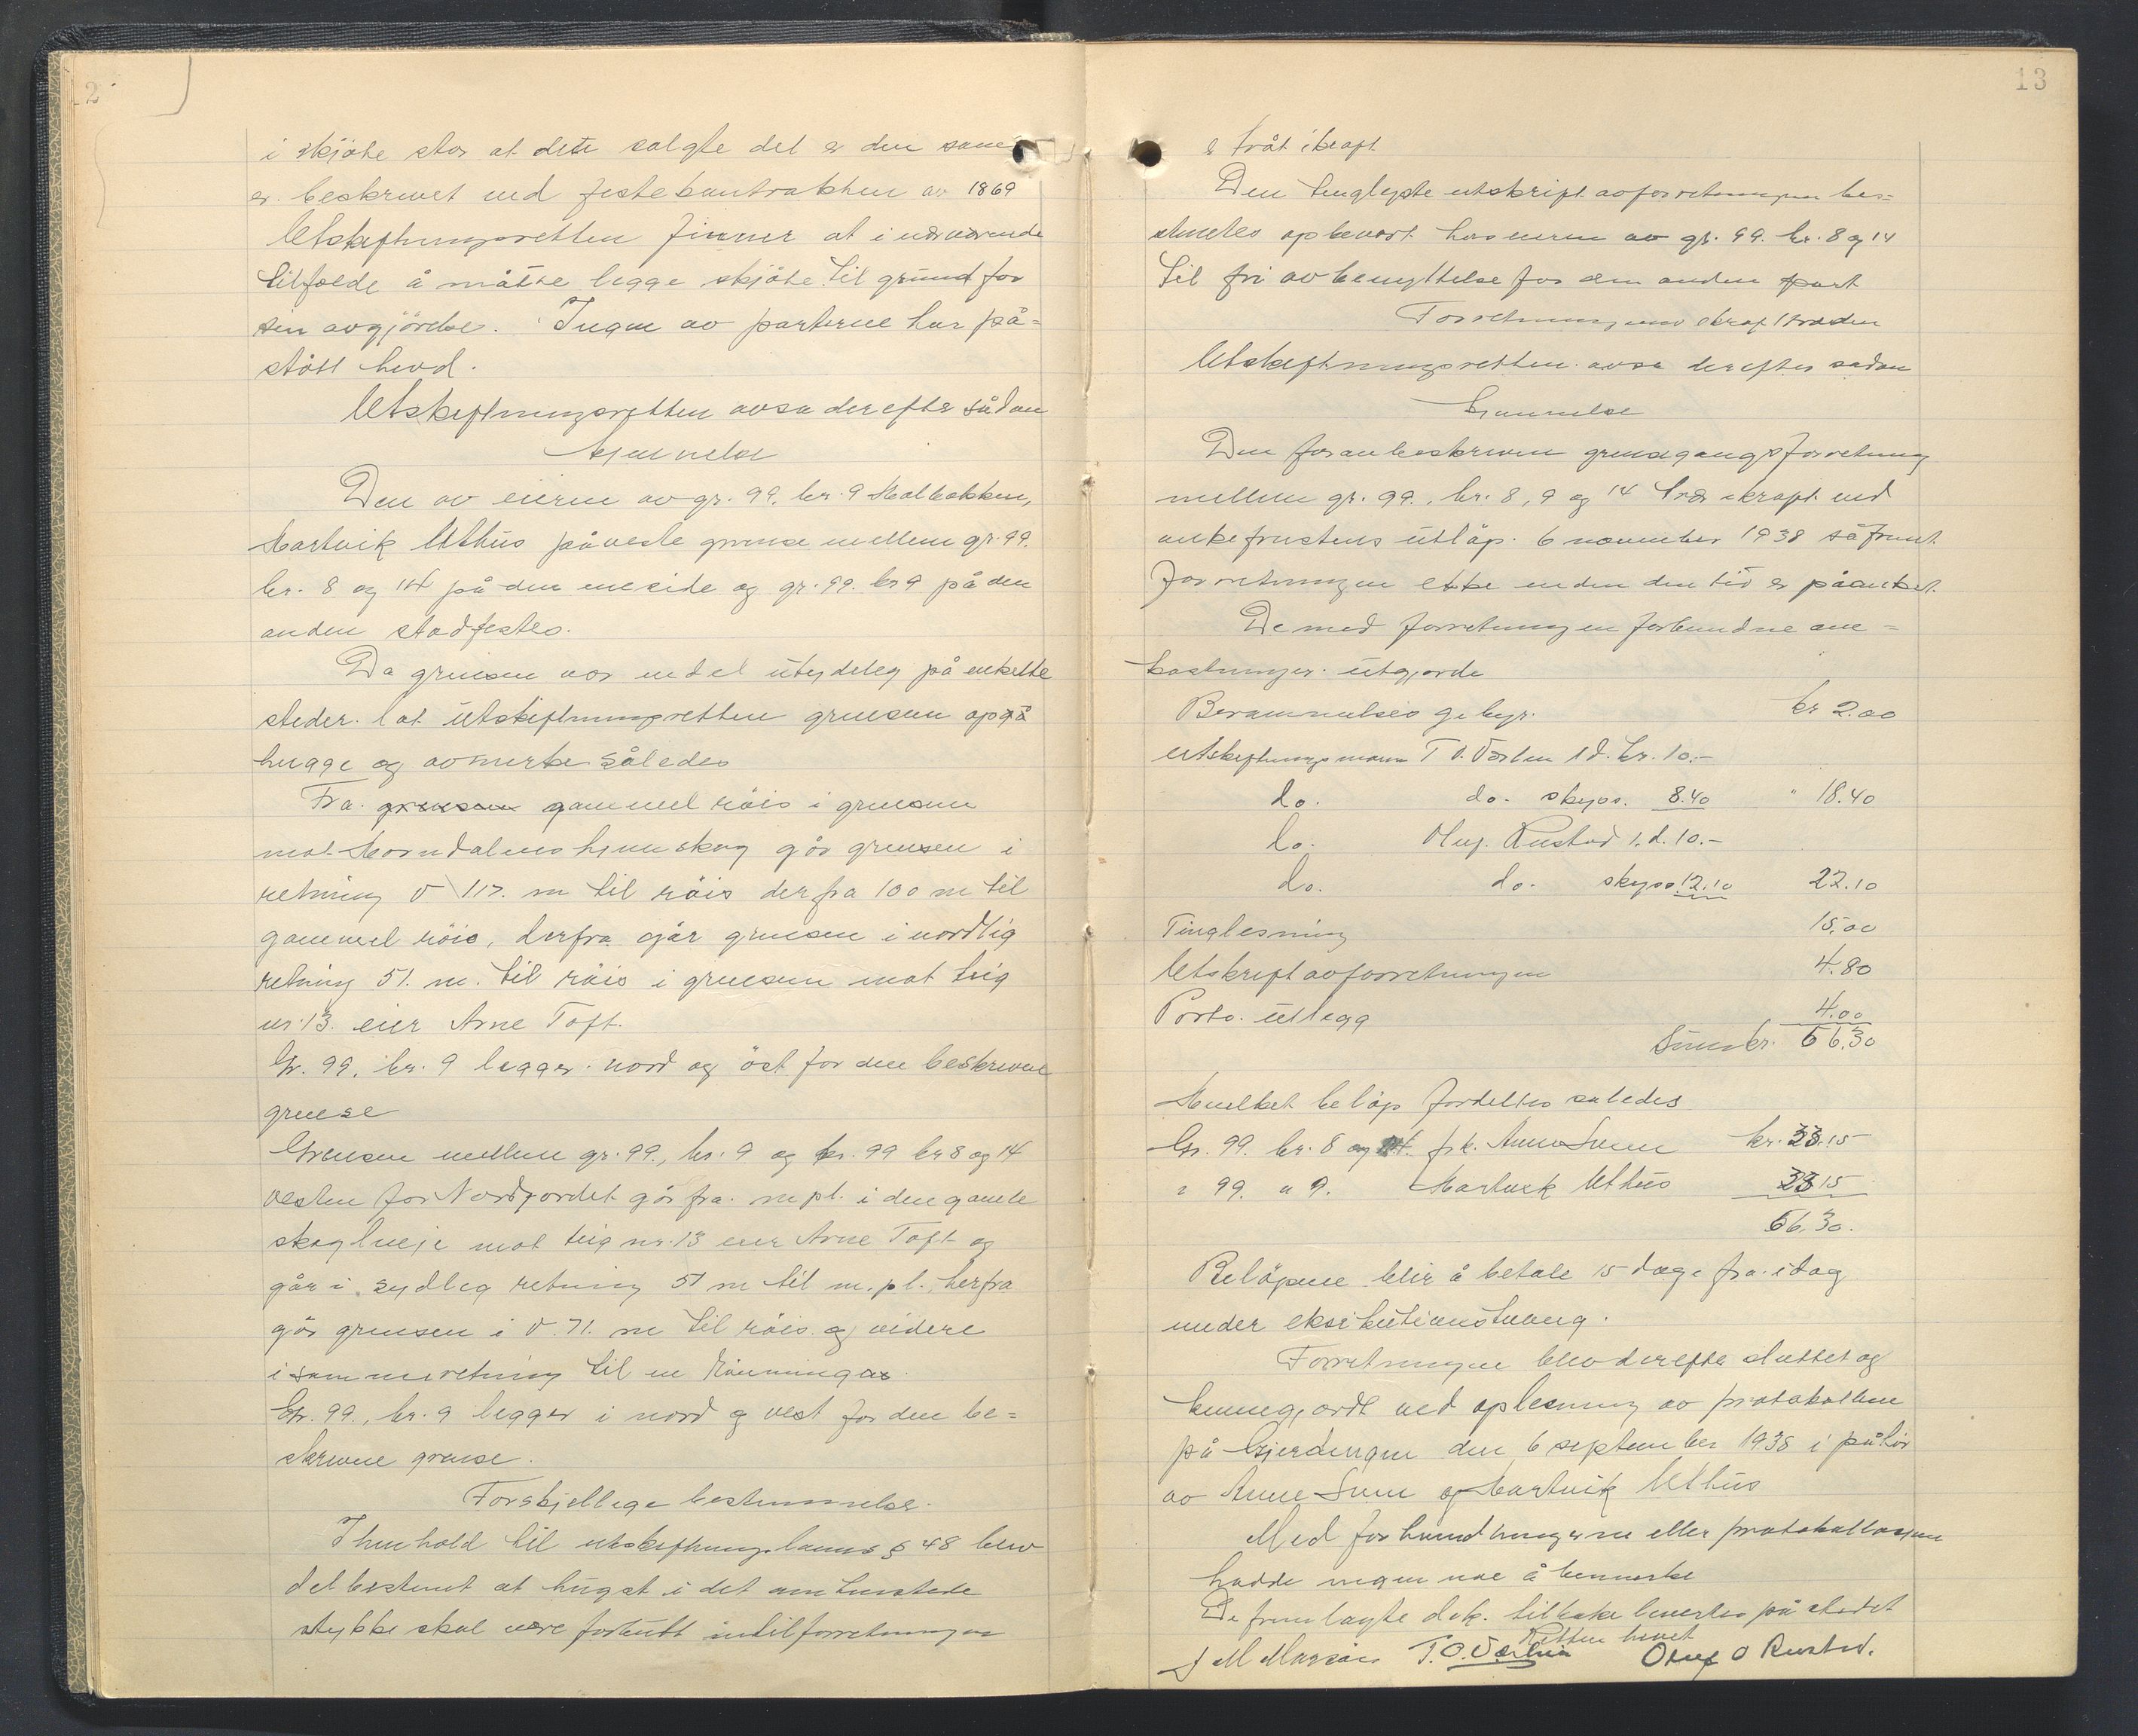 12
i skjöte står at dete solgte del er den same
er beskrevet ved festekontrakten av 1869
Utskiftningsretten finner at i nærværende
tilfælde å måtte legge skjöte til grund for
sin avgjörelse. Ingen av parterne har på=
stått hevd.
Utskiftningsretten avsa derefter sådan
kjennelse
Den av eieren av gr. 99, br. 9
Hartvik Uthus påveste grense mellem gr. 99.
br. 8 og 14 på den ene side og gr. 99. br 9 på den
anden stadfestes.
Da grensen var endel utydeleg på enkelte
steder. lot utskiftningsretten grensen oppå
hugge og avmerke således
Fra. grensen gammel röis i grensen
mot hjemskog går grensen i
retning V 117. m til röis derfra 100 m til
gammel röis, derfra går grensen i nordlig
retning 51. m. til röis i grensen mot teig
nr. 13. eier Arne Toft.
Gr. 99, br. 9 legger nord og öst for den beskrevne
grense
Grensen mellem gr. 99., br. 9 og gr. 99 br 8 og 14
vesten for Nordjordet går fra. m pl. i den gamle
skogtueje mot teig nr. 13 eier Arne Toft og
går i sydleg retning 51 m til m. pl., herfra
går grensen i V. 71. m til röis og videre
i samme retning til en
Gr. 99., br. 9 legger i nord og vest for den be=
skrevne grense.
Forskjellige bestemmelser.
I henhold til utskiftningslovens § 48 blev
det bestemt at hugst i det omtvistede
stykke skal være forbutt intil forretningen
13
er tråt i kraft
Den tinglyste utskrift av forretningen bes=
stmetes opbevart hos eieren av gr. 99. br. 8 og 14
til fri avbenyttelse for den anden part
Forretningens ikrafttræden
Utskiftningsretten avsa derefter sadan
kjennelse
Den foranbeskrevne grensegangsforretning
mellem gr. 99., br. 8, 9 og 14 trær ikraft ved
ankefristens utlöp. 6 november 1938 såfremt
forretningen ikke inden den tid er påanket.
De med forretningen forbundne om=
kostninger utgjorde
Berammelses gebyr. kr 2.00
utskiftningsmann T O. Værlien 1 d. kr. 10.-
do. do. skyss. 8.40 " 18.40
do. Oluf. Rustad 1. d. 10.-
do. do. skyss 12.10 22.10
Tinglesning 15,00
Utskrift av forretningen 4.80
Porto. utlegg 4.00
Sum kr. 66.30
Hvilket belöp fordeltes saledes
Gr. 99. br. 8 og 14. frk. Anne Svem kr. 33.15
" 99. " 9. Hartvik Uthus 33 15
66.30.
Belöpene blir å betale 15 dage fra. idag
under eksikutionstvang.
Forretningen blev derefter sluttet og
kunngjordt ved oplesning av protokollen
på Gjerdingen den 6 september 1938 i påhör
av Anne Svem og Hartvik Uthus
Med forhandlingerne eller protokollasjon
hadde ingen noe å bemerke
De fremlagte dok. tilbake leverles på stedet
Retten hevet
T. O. Værlien Oluf O Rustad.